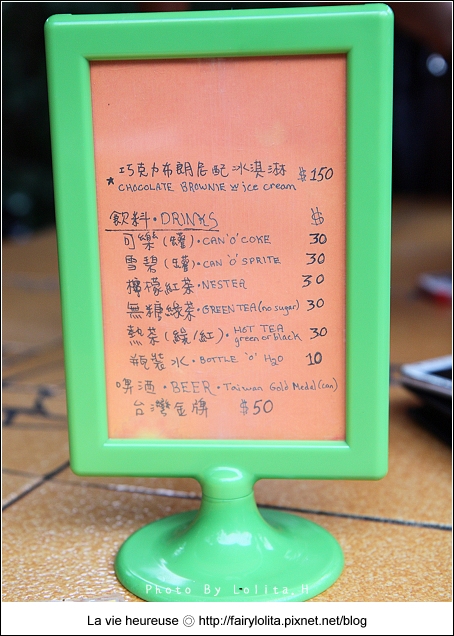 巧克力布朗尼配冰淇淋 $150
* CHOCOLATE BROWNIE w/ ice cream
飲料・DRINKS $
可樂(罐)・CAN 'O' COKE 30
雪碧(罐)・CAN 'O' SPRITE 30
檸檬紅茶・NESTEA 30
無糖綠茶・GREEN TEA (no sugar) 30
熱茶(綠/紅)・HOT TEA green or black 30
瓶裝水・BOTTLE 'O' H2O 10
啤酒・BEER・Taiwan Gold Medal (can)
台灣金牌 $50
Photo By Lolita.H
La vie heureuse ◎ http://fairylolita.pixnet.net/blog